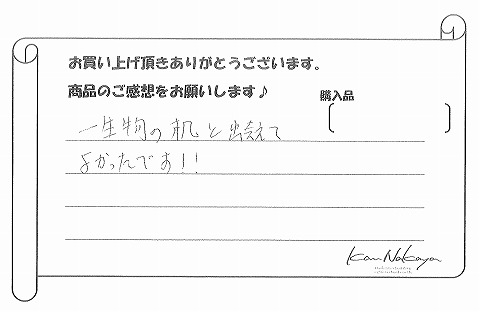 お買い上げ頂きありがとうございます。
商品のご感想をお願いします♪
購入品
一生物の机と出会えて
よかったです!!